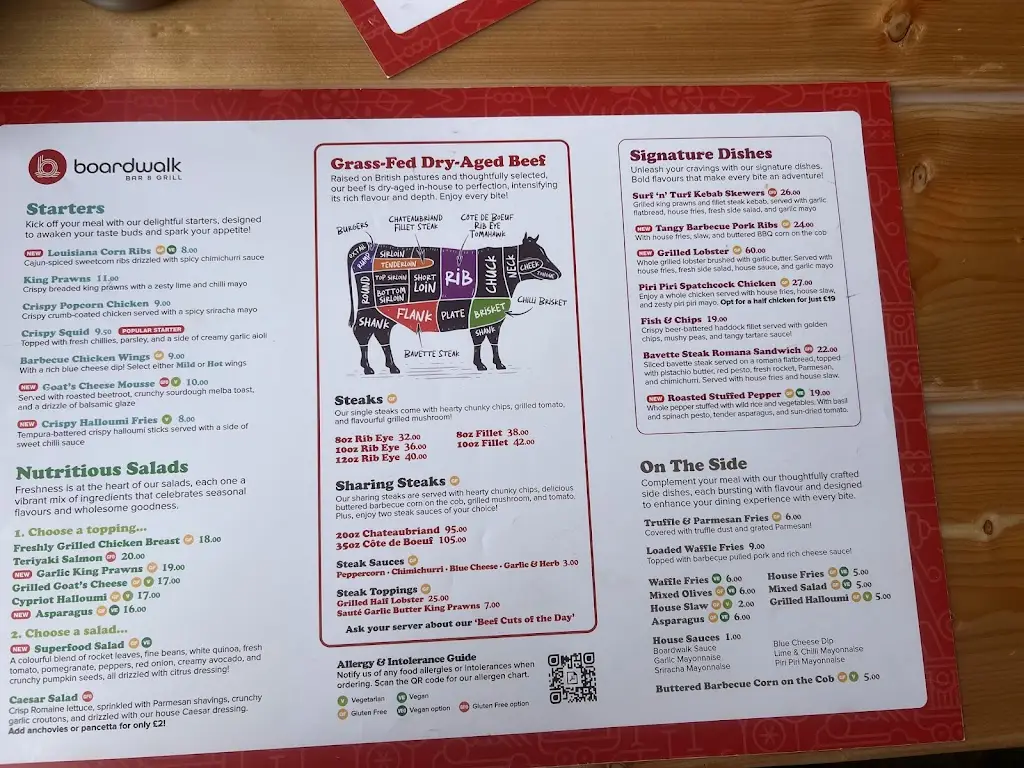 boardwalk
BAR & GRILL
Starters
Kick off your meal with our delightful starters, designed
to awaken your taste buds and spark your appetite!
NEW Louisiana Corn Ribs GF VE 8.00
Cajun-spiced sweetcorn ribs drizzled with spicy chimichurri sauce
King Prawns 11.00
Crispy breaded king prawns with a zesty lime and chilli mayo
Crispy Popcorn Chicken 9.00
Crispy crumb-coated chicken served with a spicy sriracha mayo
Crispy Squid 9.50 POPULAR STARTER
Topped with fresh chillies, parsley, and a side of creamy garlic aioli
Barbecue Chicken Wings GF 9.00
With a rich blue cheese dip! Select either Mild or Hot wings
NEW Goat's Cheese Mousse GFO V 10.00
Served with roasted beetroot, crunchy sourdough melba toast,
and a drizzle of balsamic glaze
NEW Crispy Halloumi Fries V 8.00
Tempura-battered crispy halloumi sticks served with a side of
sweet chilli sauce
Nutritious Salads
Freshness is at the heart of our salads, each one a
vibrant mix of ingredients that celebrates seasonal
flavours and wholesome goodness.
1. Choose a topping...
Freshly Grilled Chicken Breast GF 18.00
Teriyaki Salmon GFO 20.00
NEW Garlic King Prawns GF 19.00
Grilled Goat's Cheese GF V 17.00
Cypriot Halloumi GF V 17.00
NEW Asparagus GF VE 16.00
2. Choose a salad...
NEW Superfood Salad GF VE
A colourful blend of rocket leaves, fine beans, white quinoa, fresh
tomato, pomegranate, peppers, red onion, creamy avocado, and
crunchy pumpkin seeds, all drizzled with citrus dressing!
Caesar Salad GFO
Crisp Romaine lettuce, sprinkled with Parmesan shavings, crunchy
garlic croutons, and drizzled with our house Caesar dressing.
Add anchovies or pancetta for only £2!
Grass-Fed Dry-Aged Beef
Raised on British pastures and thoughtfully selected,
our beef is dry-aged in-house to perfection, intensifying
its rich flavour and depth. Enjoy every bite!
BURGERS
CHATEAUBRIAND
FILLET STEAK
CÔTE DE BOEUF
RIB EYE
TOMAHAWK
OXTAIL
RUMP
SIRLOIN
TENDERLOIN
TOP SIRLOIN
BOTTOM SIRLOIN
ROUND
SHORT LOIN
RIB
CHUCK
NECK
CHEEK
TONGUE
SHANK
FLANK
PLATE
BRISKET
SHANK
CHILLI BRISKET
BAVETTE STEAK
Steaks GF
Our single steaks come with hearty chunky chips, grilled tomato,
and flavourful grilled mushroom!
8oz Rib Eye 32.00
10oz Rib Eye 36.00
12oz Rib Eye 40.00
8oz Fillet 38.00
10oz Fillet 42.00
Sharing Steaks GF
Our sharing steaks are served with hearty chunky chips, delicious
buttered barbecue corn on the cob, grilled mushroom, and tomato.
Plus, enjoy two steak sauces of your choice!
20oz Chateaubriand 95.00
35oz Côte de Boeuf 105.00
Steak Sauces GF
Peppercorn · Chimichurri · Blue Cheese · Garlic & Herb 3.00
Steak Toppings GF
Grilled Half Lobster 25.00
Sauté Garlic Butter King Prawns 7.00
Ask your server about our 'Beef Cuts of the Day'
Allergy & Intolerance Guide
Notify us of any food allergies or intolerances when
ordering. Scan the QR code for our allergen chart.
V Vegetarian VE Vegan
GF Gluten Free Vegan option GFO Gluten Free option
Signature Dishes
Unleash your cravings with our signature dishes.
Bold flavours that make every bite an adventure!
Surf 'n' Turf Kebab Skewers GFO 26.00
Grilled king prawns and fillet steak kebab, served with garlic
flatbread, house fries, fresh side salad, and garlic mayo
NEW Tangy Barbecue Pork Ribs GF 24.00
With house fries, slaw, and buttered BBQ corn on the cob
NEW Grilled Lobster GF 60.00
Whole grilled lobster brushed with garlic butter. Served with
house fries, fresh side salad, house sauce, and garlic mayo
Piri Piri Spatchcock Chicken GF 27.00
Enjoy a whole chicken served with house fries, house slaw,
and zesty piri piri mayo. Opt for a half chicken for just £19
Fish & Chips 19.00
Crispy beer-battered haddock fillet served with golden
chips, mushy peas, and tangy tartare sauce!
Bavette Steak Romana Sandwich GFO 22.00
Sliced bavette steak served on a romana flatbread, topped
with pistachio butter, red pesto, fresh rocket, Parmesan,
and chimichurri. Served with house fries and house slaw.
NEW Roasted Stuffed Pepper GF VE 19.00
Whole pepper stuffed with wild rice and vegetables. With basil
and spinach pesto, tender asparagus, and sun-dried tomato.
On The Side
Complement your meal with our thoughtfully crafted
side dishes, each bursting with flavour and designed
to enhance your dining experience with every bite.
Truffle & Parmesan Fries GF 6.00
Covered with truffle dust and grated Parmesan!
Loaded Waffle Fries 9.00
Topped with barbecue pulled pork and rich cheese sauce!
Waffle Fries VE 6.00
Mixed Olives GF VE 6.00
House Slaw GF V 2.00
Asparagus GF VE 6.00
House Fries GF VE 5.00
Mixed Salad GF VE 5.00
Grilled Halloumi GF V 5.00
House Sauces 1.00
Boardwalk Sauce
Garlic Mayonnaise
Sriracha Mayonnaise
Blue Cheese Dip
Lime & Chilli Mayonnaise
Piri Piri Mayonnaise
Buttered Barbecue Corn on the Cob GF V 5.00